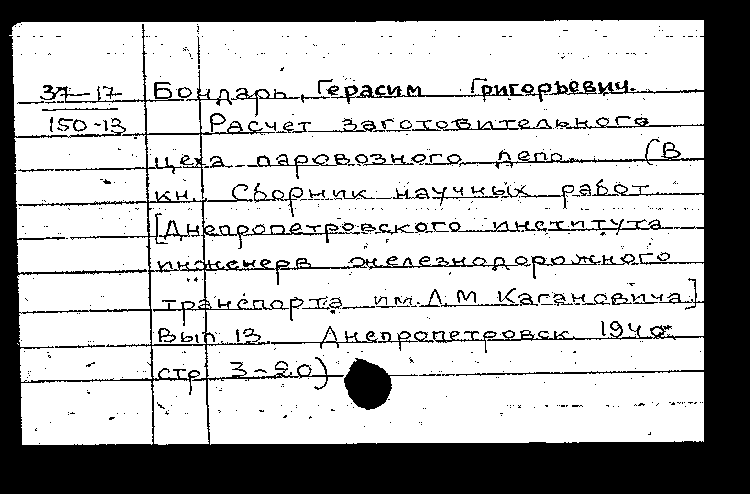 37-17 Бондарь, Герасим Григорьевич.
150-13 Расчет заготовительного
цеха паровозного депо. (В
кн. Сборник научных работ
[Днепропетровского института
инженерв железнодорожного
транспорта им. Л.М Кагановича]
Вып 13. Днепропетровск 1940.
стр 3-20)